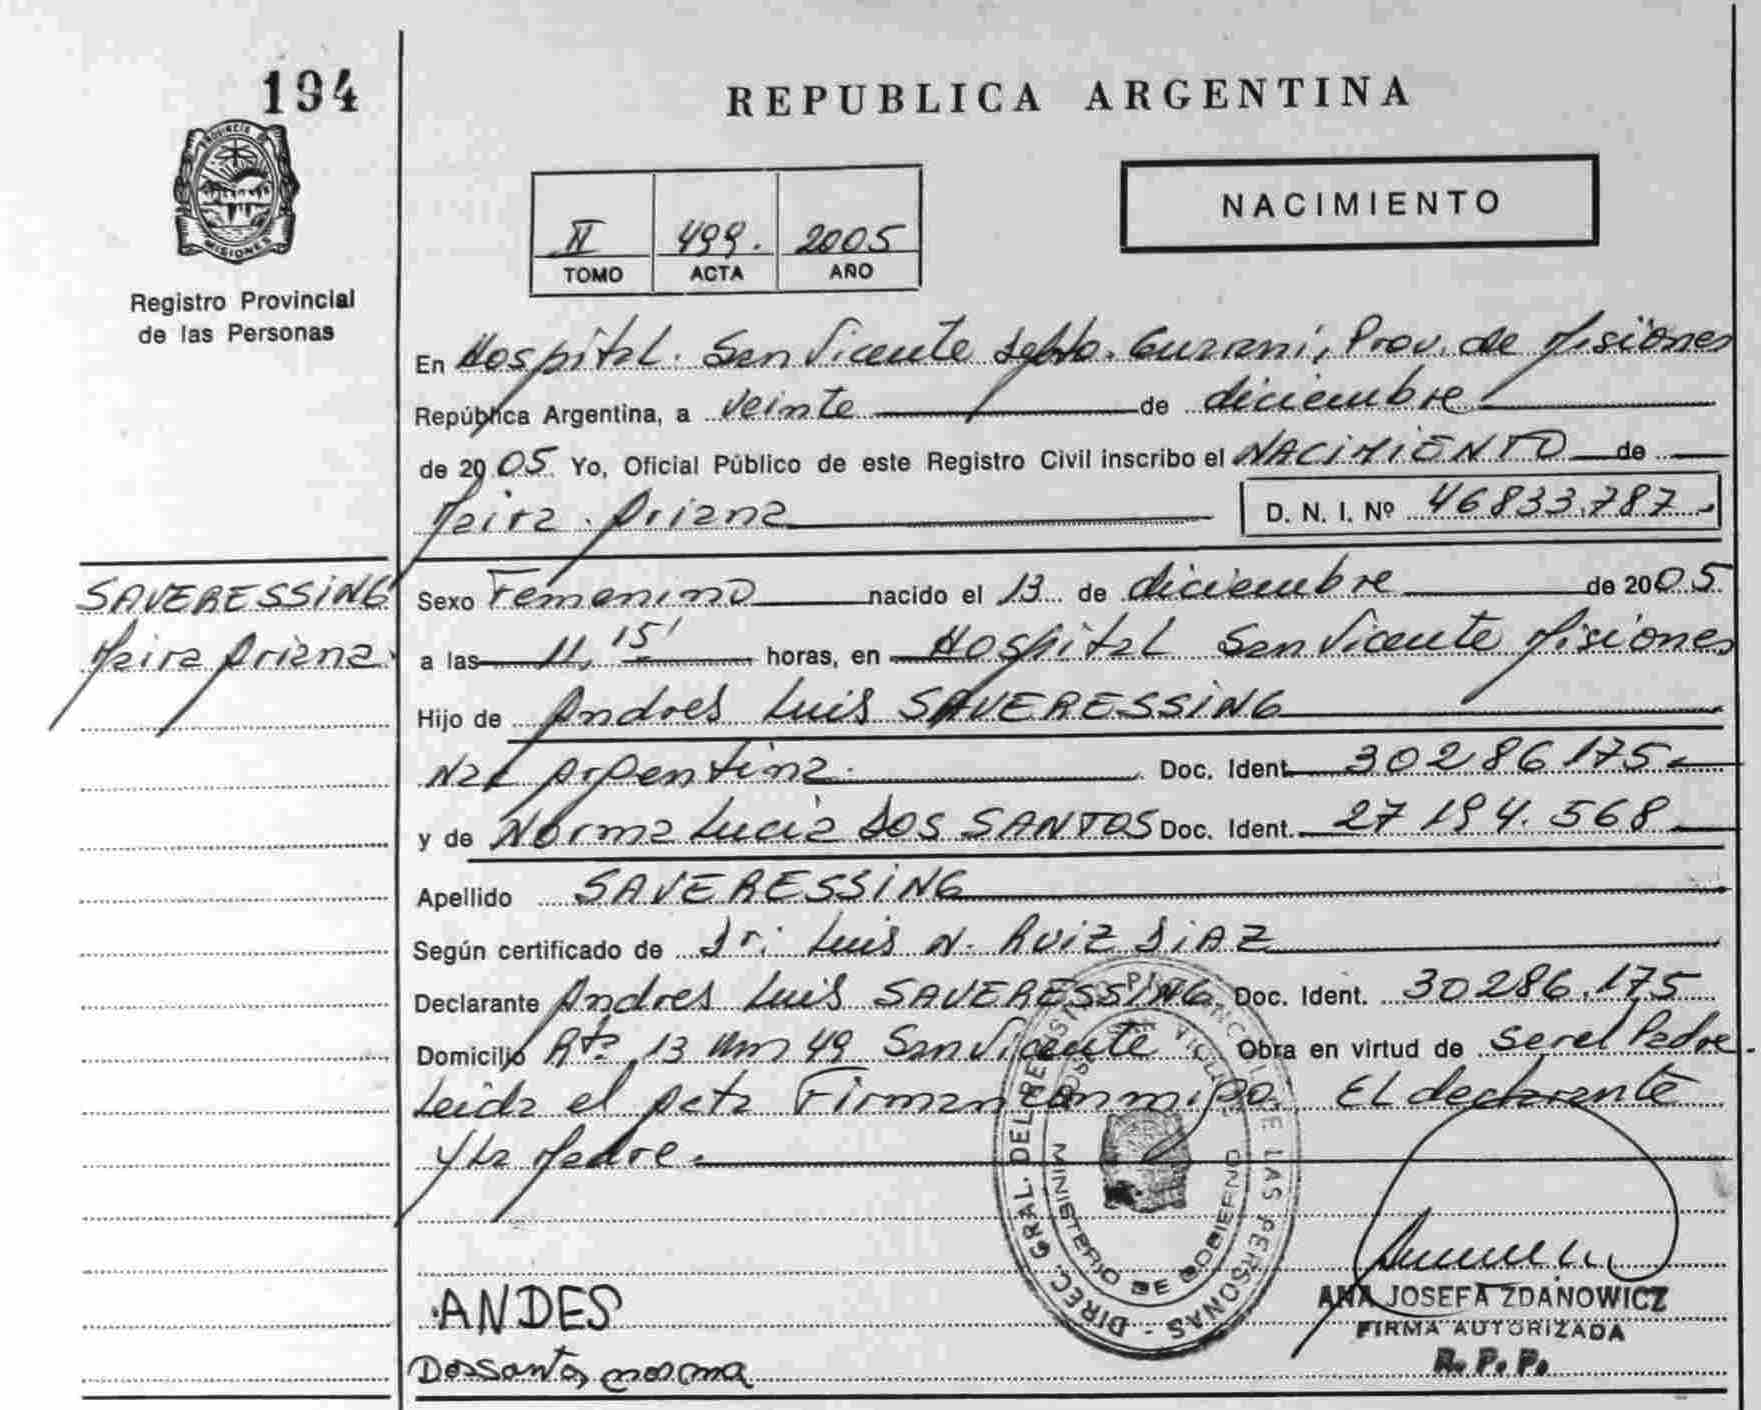 194
REPUBLICA ARGENTINA
PROVINCIA DE
MISIONES
Registro Provincial
de las Personas
NACIMIENTO
II 499. 2005
TOMO ACTA AÑO
En Hospital. San Vicente Dpto. Guarani, Prov. de Misiones
República Argentina, a veinte de diciembre
de 2005 Yo, Oficial Público de este Registro Civil inscribo el NACIMIENTO de
Maira Ariana
D. N. I. Nº 46833.787
SAVERESSING
Maira Ariana
Sexo Femenino nacido el 13 de diciembre de 2005
a las 11,15' horas, en Hospital San Vicente Misiones
Hijo de Andres Luis SAVERESSING
Nac Argentina. Doc. Ident. 30286175
y de Norma Lucia DOS SANTOS Doc. Ident. 27194.568
Apellido SAVERESSING
Según certificado de Dr: Luis N. RUIZ DIAZ
Declarante Andres Luis SAVERESSING Doc. Ident. 30286.175
Domicilio Rta 13 Km 49 San Vicente Obra en virtud de ser el Padre.
Leida el Acta Firman conmigo El declarante
y la Madre.
DIREC. GRAL. DEL REGISTRO PROVINCIAL DE LAS PERSONAS -
MINISTERIO DE GOBIERNO
ANDES
Dossantos norma
ANA JOSEFA ZDANOWICZ
FIRMA AUTORIZADA
R. P. P.